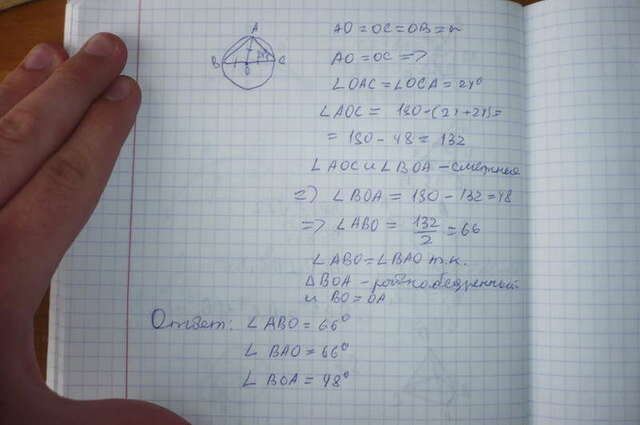 A
B
O
C
24°
AO = OC = OB = r
AO = OC =>
∠OAC = ∠OCA = 24°
∠AOC = 180 - (24+24) =
= 180 - 48 = 132
∠AOC и ∠BOA - смежные
=> ∠BOA = 180 - 132 = 48
=> ∠ABO = 132/2 = 66
∠ABO = ∠BAO т.к.
△BOA - равнобедренный
и BO = OA
Ответ: ∠ABO = 66°
∠ BAO = 66°
∠ BOA = 48°